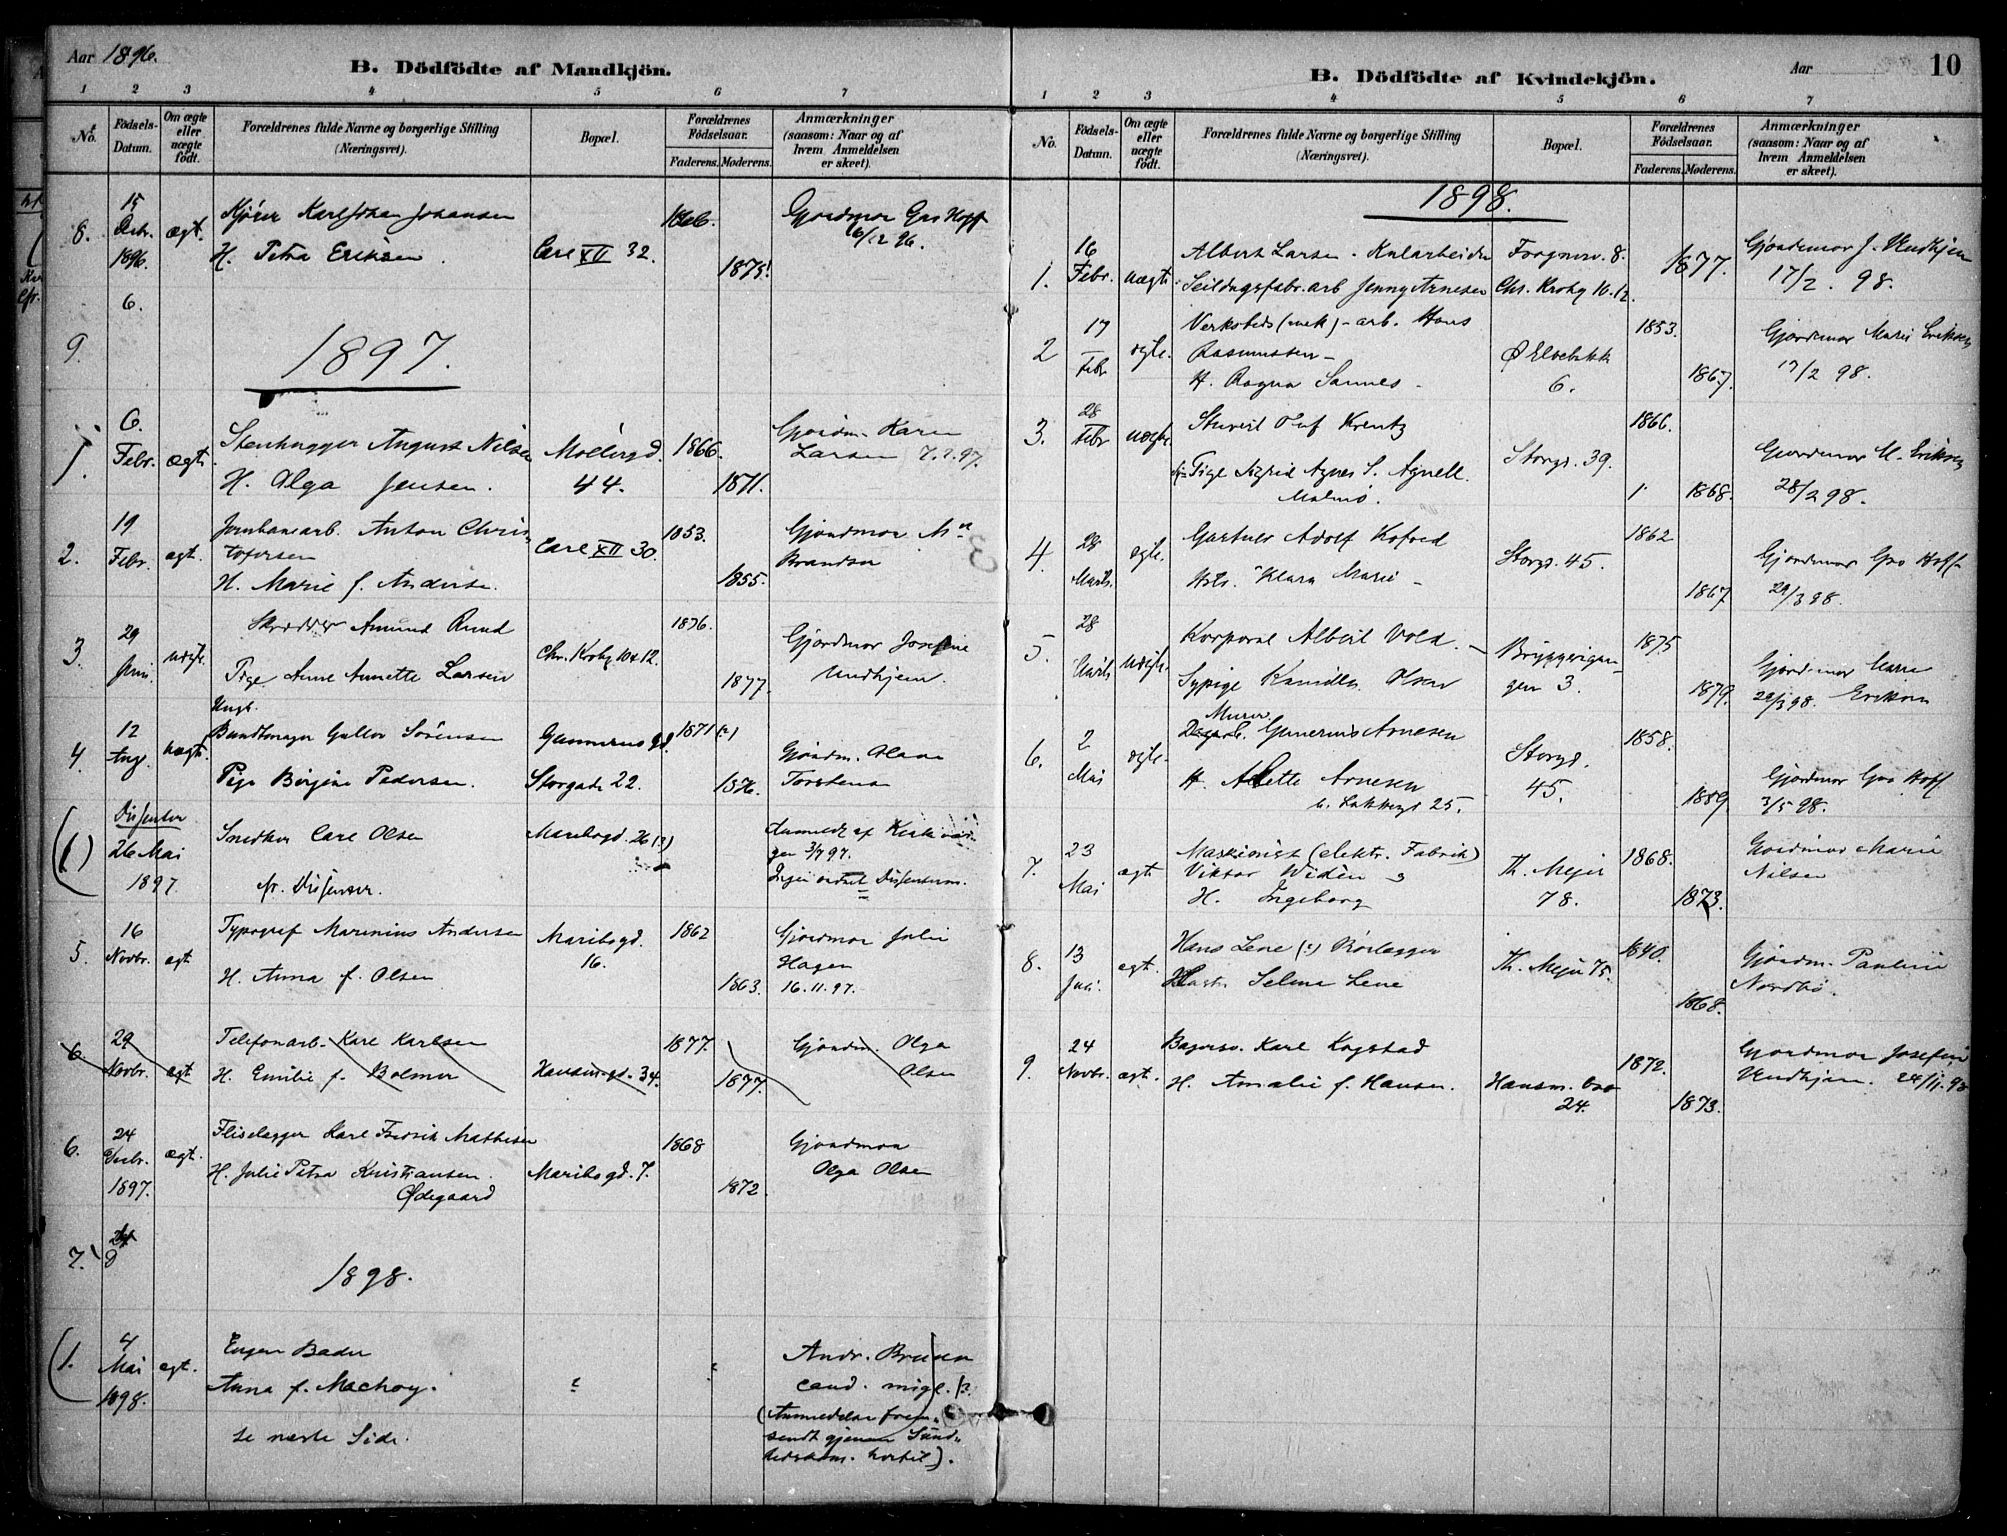 Aar 1896.
B. Dödfödte af Mandkjön.
1 2 3 4 5 6 7
No.
Födsels-
Datum.
Om ægte
eller
uægte
født.
Forældrenes fulde Navne og borgerlige Stilling
(Næringsvei).
Bopæl.
Forældrenes
Fødselsaar.
Faderens. Moderens.
Anmærkninger
(saasom: Naar og af
hvem Anmeldelsen
er skeet).
8. 15 Decbr. 1896. ægt.
Kjører Karl Johan Johansen
H. Petra Eriksen.
Carl XII 32.
1875.
Gjordmor Gro Hoff
16/12 96.
6.
9.
1897.
1. 6. Febr. ægt.
Stenhugger August Nilsen
H. Olga Jensen.
Møllergd.
44.
1866.
1871.
Gjordm. Karen
Larsen 7.2.97.
2. 19 Febr. ægt.
Jernbanearb. Anton Chris-
tofersen
H. Marie f. Andersen.
Carl XII 30.
1853.
1855.
Gjordmor
Brandser
3. 29 Juni. uægte.
Skrædder Amund Ruud
Pige Anne Annette Larsen
Chr. Krohg 10 & 12.
1876.
1877.
Gjordmor Josefine
Undhjem.
4. 12 Aug. uægte
Ungk.
Bundtmager Gullov Sörensen
Pige Börgine Pedersen.
Gunnerusgd.
Storgade 22.
1871 (?)
1876.
Gjordm.
Torstensen
(1) Dissenter
26 Mai
1897
Snedker Carl Olsen
fr. Dissenter.
Maribogd. 26 (?)
Anmeldt af
3/7 97.
5. 16 Novbr. ægt
Typograf Marinius Andersen
H. Anna f. Olsen
Maribogd.
16.
1862
1863.
Gjordmor Julie
Hagen
16.11.97.
6. 29 Novbr. ægt
Telefonarb. Karl Karlsen
H. Emilie f. Bolmer
Hausmgd. 34.
1877.
1877.
Gjordm. Olga
Olsen
6. 24 Decbr. 1897. ægt.
Fliselægger Karl Fredrik Mathisen
H. Julie Petra Kristiansen.
Ødegaard
Maribogd. 7.
1868
1872
Gjordmor
Olga Olsen
7.
1898.
(1. 4 Mai 1898. ægt.
Eugen Bader
Anna f. Machoy.
Andr. Bruun
cand. migl.
(Anmeldelse frem-
sendt gjennem Sund-
hedskom. hertil).
se næste Side.
B. Dödfödte af Kvindekjön.
Aar
10
1 2 3 4 5 6 7
No.
Fødsels-
Datum.
Om ægte
eller
uægte
født.
Forældrenes fulde Navne og borgerlige Stilling
(Næringsvei).
Bopæl.
Forældrenes
Fødselsaar.
Faderens. Moderens.
Anmærkninger
(saasom: Naar og af
hvem Anmeldelsen
er skeet).
1898.
1. 16 Febr. uægte
Albert Larsen - Kularbeider
Seildugsfabr. arb Jenny Arnesen
Forgnesv. 8.
Chr. Krohg 10.12.
1877.
Gjordemor J. Undhjem
17/2. 98.
2 17 Febr ægte.
Verksteds (mek) - arb. Hans
Rasmussen -
H. Ragna Sannes -
Ø Elvebakk
6.
1853.
1867.
Gjordemor Marie Eriksen
17/2 98.
3. 28 Febr uægte
Stuvert Oluf Krentz
Pige Sigrid Agnes S. Agnell.
Malmö.
Storgd. 39.
1866.
1868.
Gjordemor M. Eriksen
28/2 98.
4. 28 Marts. ægte.
Gartner Adolf Kofoed
Hstr. Klara Marie -
Storgd. 45.
1862
1867
Gjordmor Gro Hoff
29/3 98.
5. 28 Marts uægte
Korporal Albert Vold. -
Sypige Kamilla Olsen
Bryggerigan-
gen 3.
1875
1879.
Gjordemor Marie
29/3 98. Eriksen
6. 2 Mai ægte.
Murer.
Dagarb. Gunerius Arnesen
H. Alette Arnesen
Lakkegd 25.
Storgd.
45.
1858.
1859
Gjordmor Gro Hoff
3/5 98.
7. 23 Mai ægt.
Maskinist (elektr. Fabrik)
Viktor Widén
H. Ingeborg
Th. Mejer
78.
1868.
1873.
Gjordmor Marie
Nilsen
8. 13 ægt.
Hans Lene (?) Börlægger
Hustr. Selma Lene
Th. Mejer 75.
1840.
1868.
Gjordm. Pauline
Nordbö.
9. 24 Novbr. ægt.
Bagersv. Karl Kogstad
H. Amalie f. Hansen.
Hausm. bro
24.
1872.
1873.
Gjordmor Josefine
Undhjem. 24/11.98